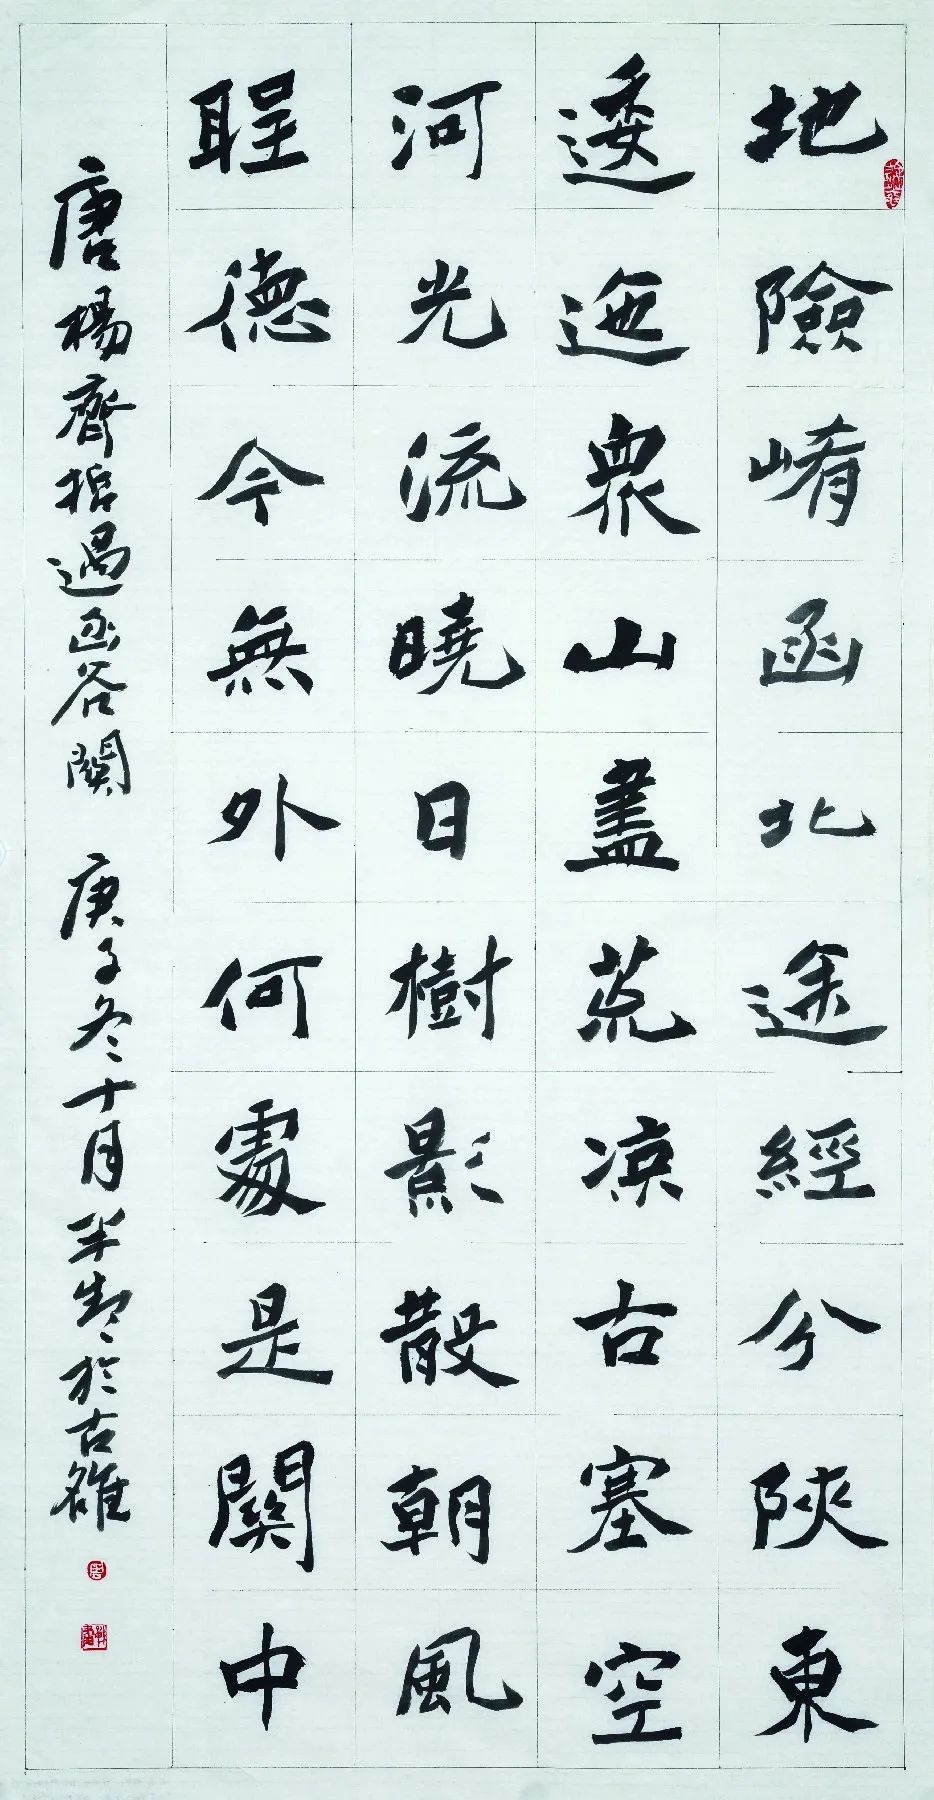 地險崤函北途經分陝東
逶迤衆山盡荒凉古塞空
河光流曉日樹影散朝風
聖德今無外何處是關中
唐楊齊哲過函谷關 庚子冬十月 於古雒